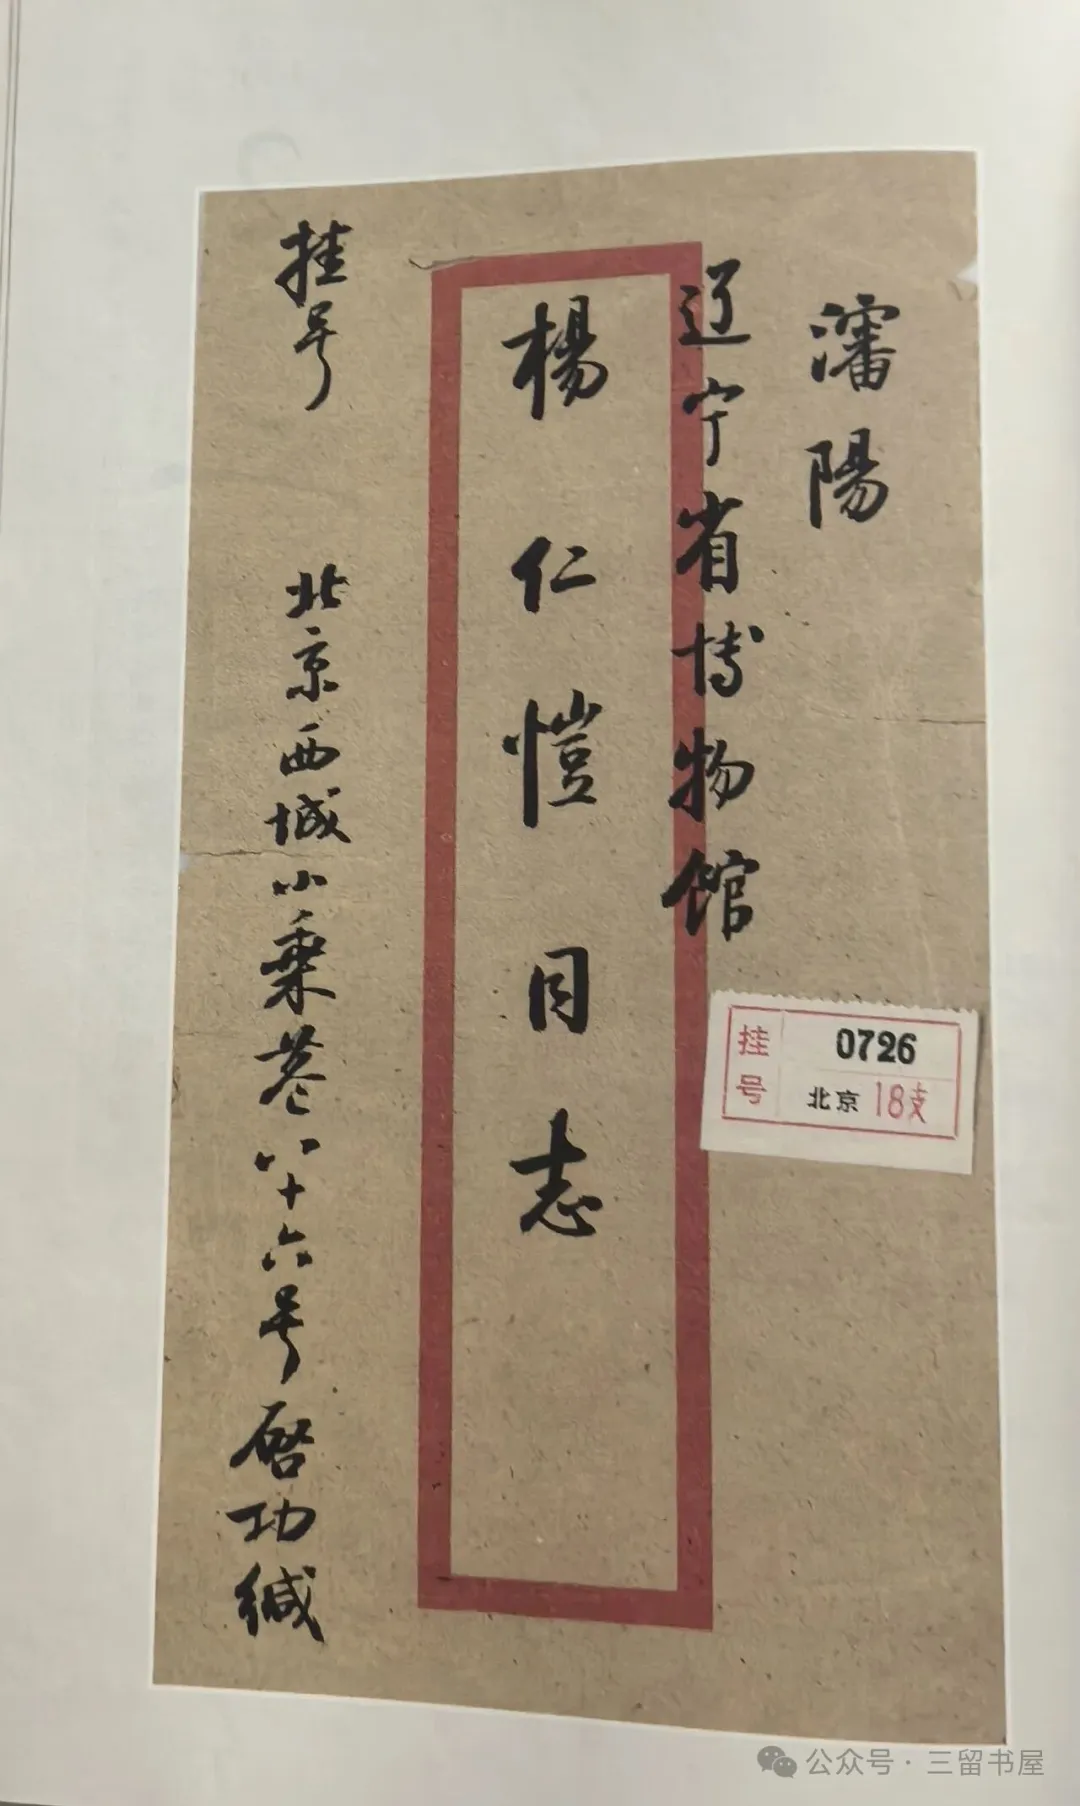 瀋陽
辽宁省博物馆
楊仁愷同志
挂号
北京西城小乘巷八十六号启功缄
挂号
0726
北京18支
公众号·三留书屋